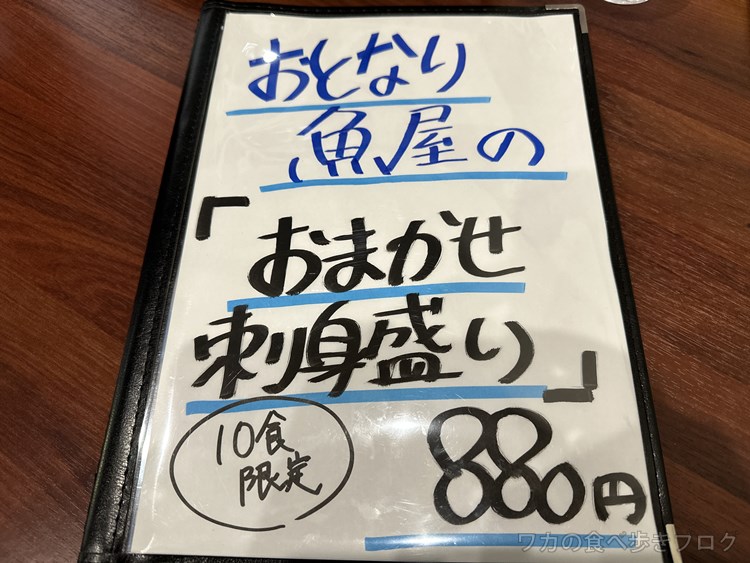 おとなり
魚屋の
「おまかせ
刺身盛り」
10食
限定
880円
ワカの食べ歩きブログ